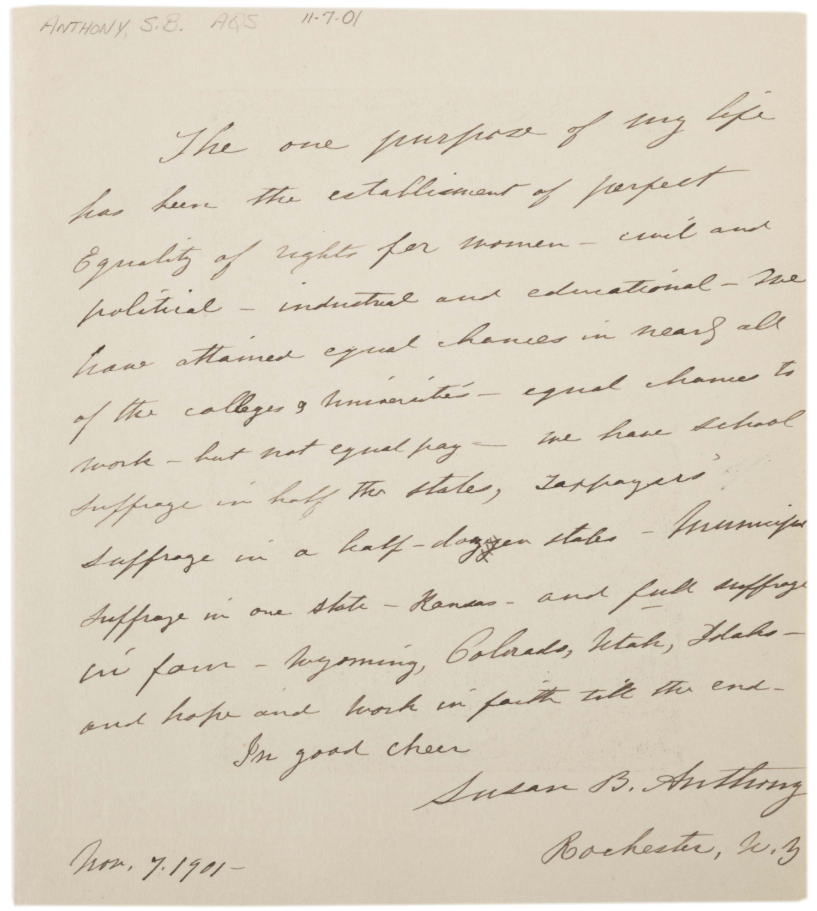 ANTHONY, S.B. AQS 11-7-01
The one purpose of my life
has been the establisment of perfect
Equality of rights for women – civil and
political – industrial and educational – We
have attained equal chances in nearly all
of the colleges & Universities – equal chances to
work – but not equal pay – we have school
suffrage in half the states, Taxpayers'
suffrage in a half-dozen states – Municipal
suffrage in one state – Kansas – and full suffrage
in four – Wyoming, Colorado, Utah, Idaho –
and hope and work in faith till the end –
In good cheer
Susan B. Anthony
Rochester, N.Y
Nov. 7. 1901 –